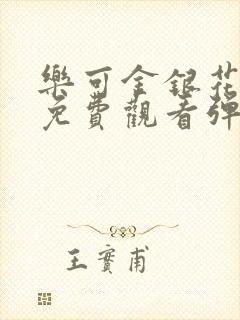 樂可金銀花
免費觀看彈
王實甫